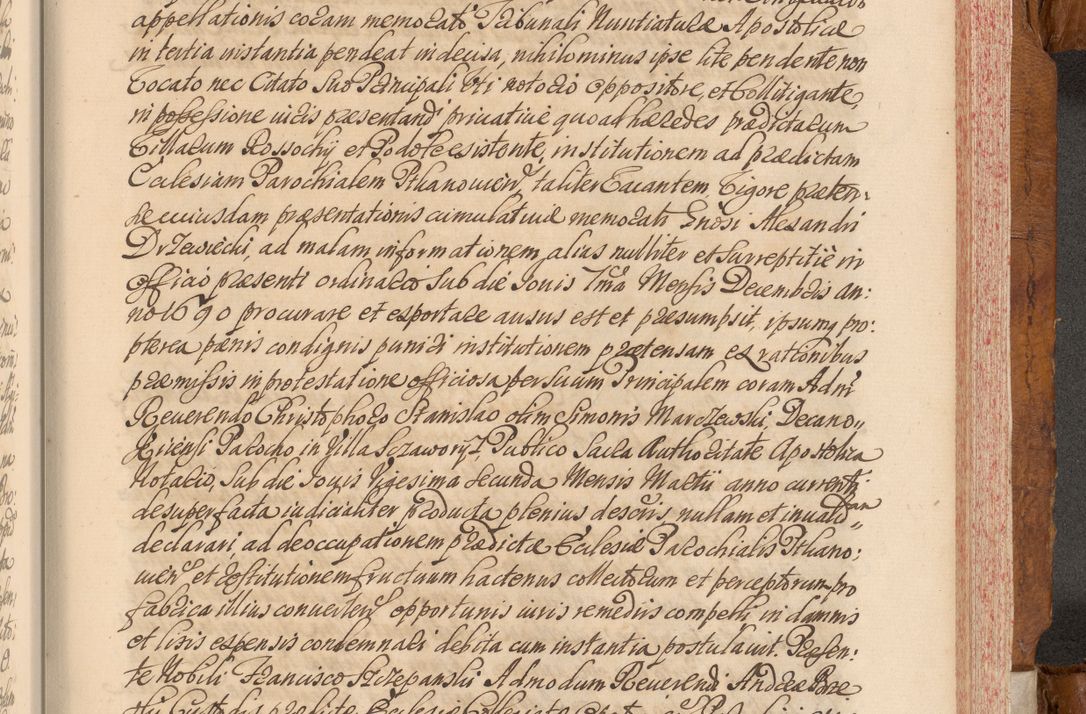 appellationis coram memorato Tribunali Nuntiaturæ Apostolicæ
in tertia instantia pendeat indecisa, nihilominus ipse lite pendente non
Vocato nec Citato Suo Principali uti notorio oppositore, et Collitigante,
in possessione iuris præsentandi privative quoad hæredes prædictarum
Villarum Rossochy et Podole existente, institutionem ad prædictam
Ecclesiam Parochialem Pthanovien. taliter Vacantem Vigore præten:
sæ cuiusdam præsentationis cumulativæ memorati Gnosi Alexandri
Drzewiecki, ad malam informationem, alias nulliter et surreptitie in
officio præsenti ordinario sub die Jovis 7ma Mensis Decembris An:
no 1690 procurare et exportare ausus est et præsumpsit, ipsumq pro:
pterea pænis condignis puniri institutionem prætensam ex rationibus
præmissis in protestatione officiosa per suum Principalem coram Adm
Reverendo Christophoro Stanislao olim Simonis Marczewski, Decano
Parocho in Villa Publico Sacra Authoritate Apostolica
Notario, sub die Jovis Vigesima Secunda Mensis Martii anno currenti
desuper facta iudicialiter producta plenius descris nullam et invalidam
declarari, ad deoccupationem prædictæ Ecclesiæ Parochialis Pthano:
vien. et restitutionem fructuum hactenus collectorum et perceptorum pro
fabrica illius converten. opportunis iuris remediis compelli, in damnis
et litis expensis condemnari debita cum instantia postulavit. Præsen:
te Nobili Francisco Szczepanski Admodum Reverendi Andreæ